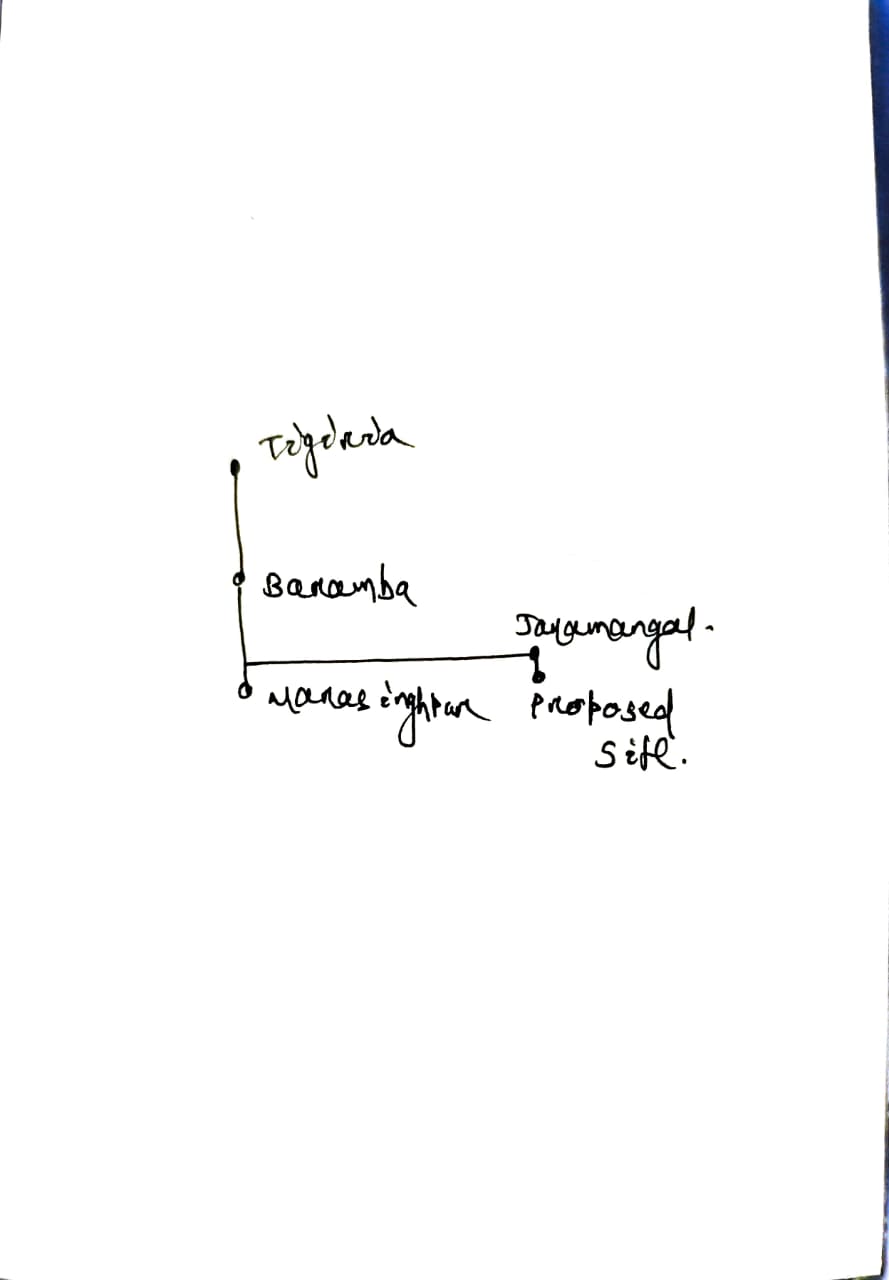 Tigiria
Baramba
Jayamangal.
Manasinghpur
Proposed
Site.